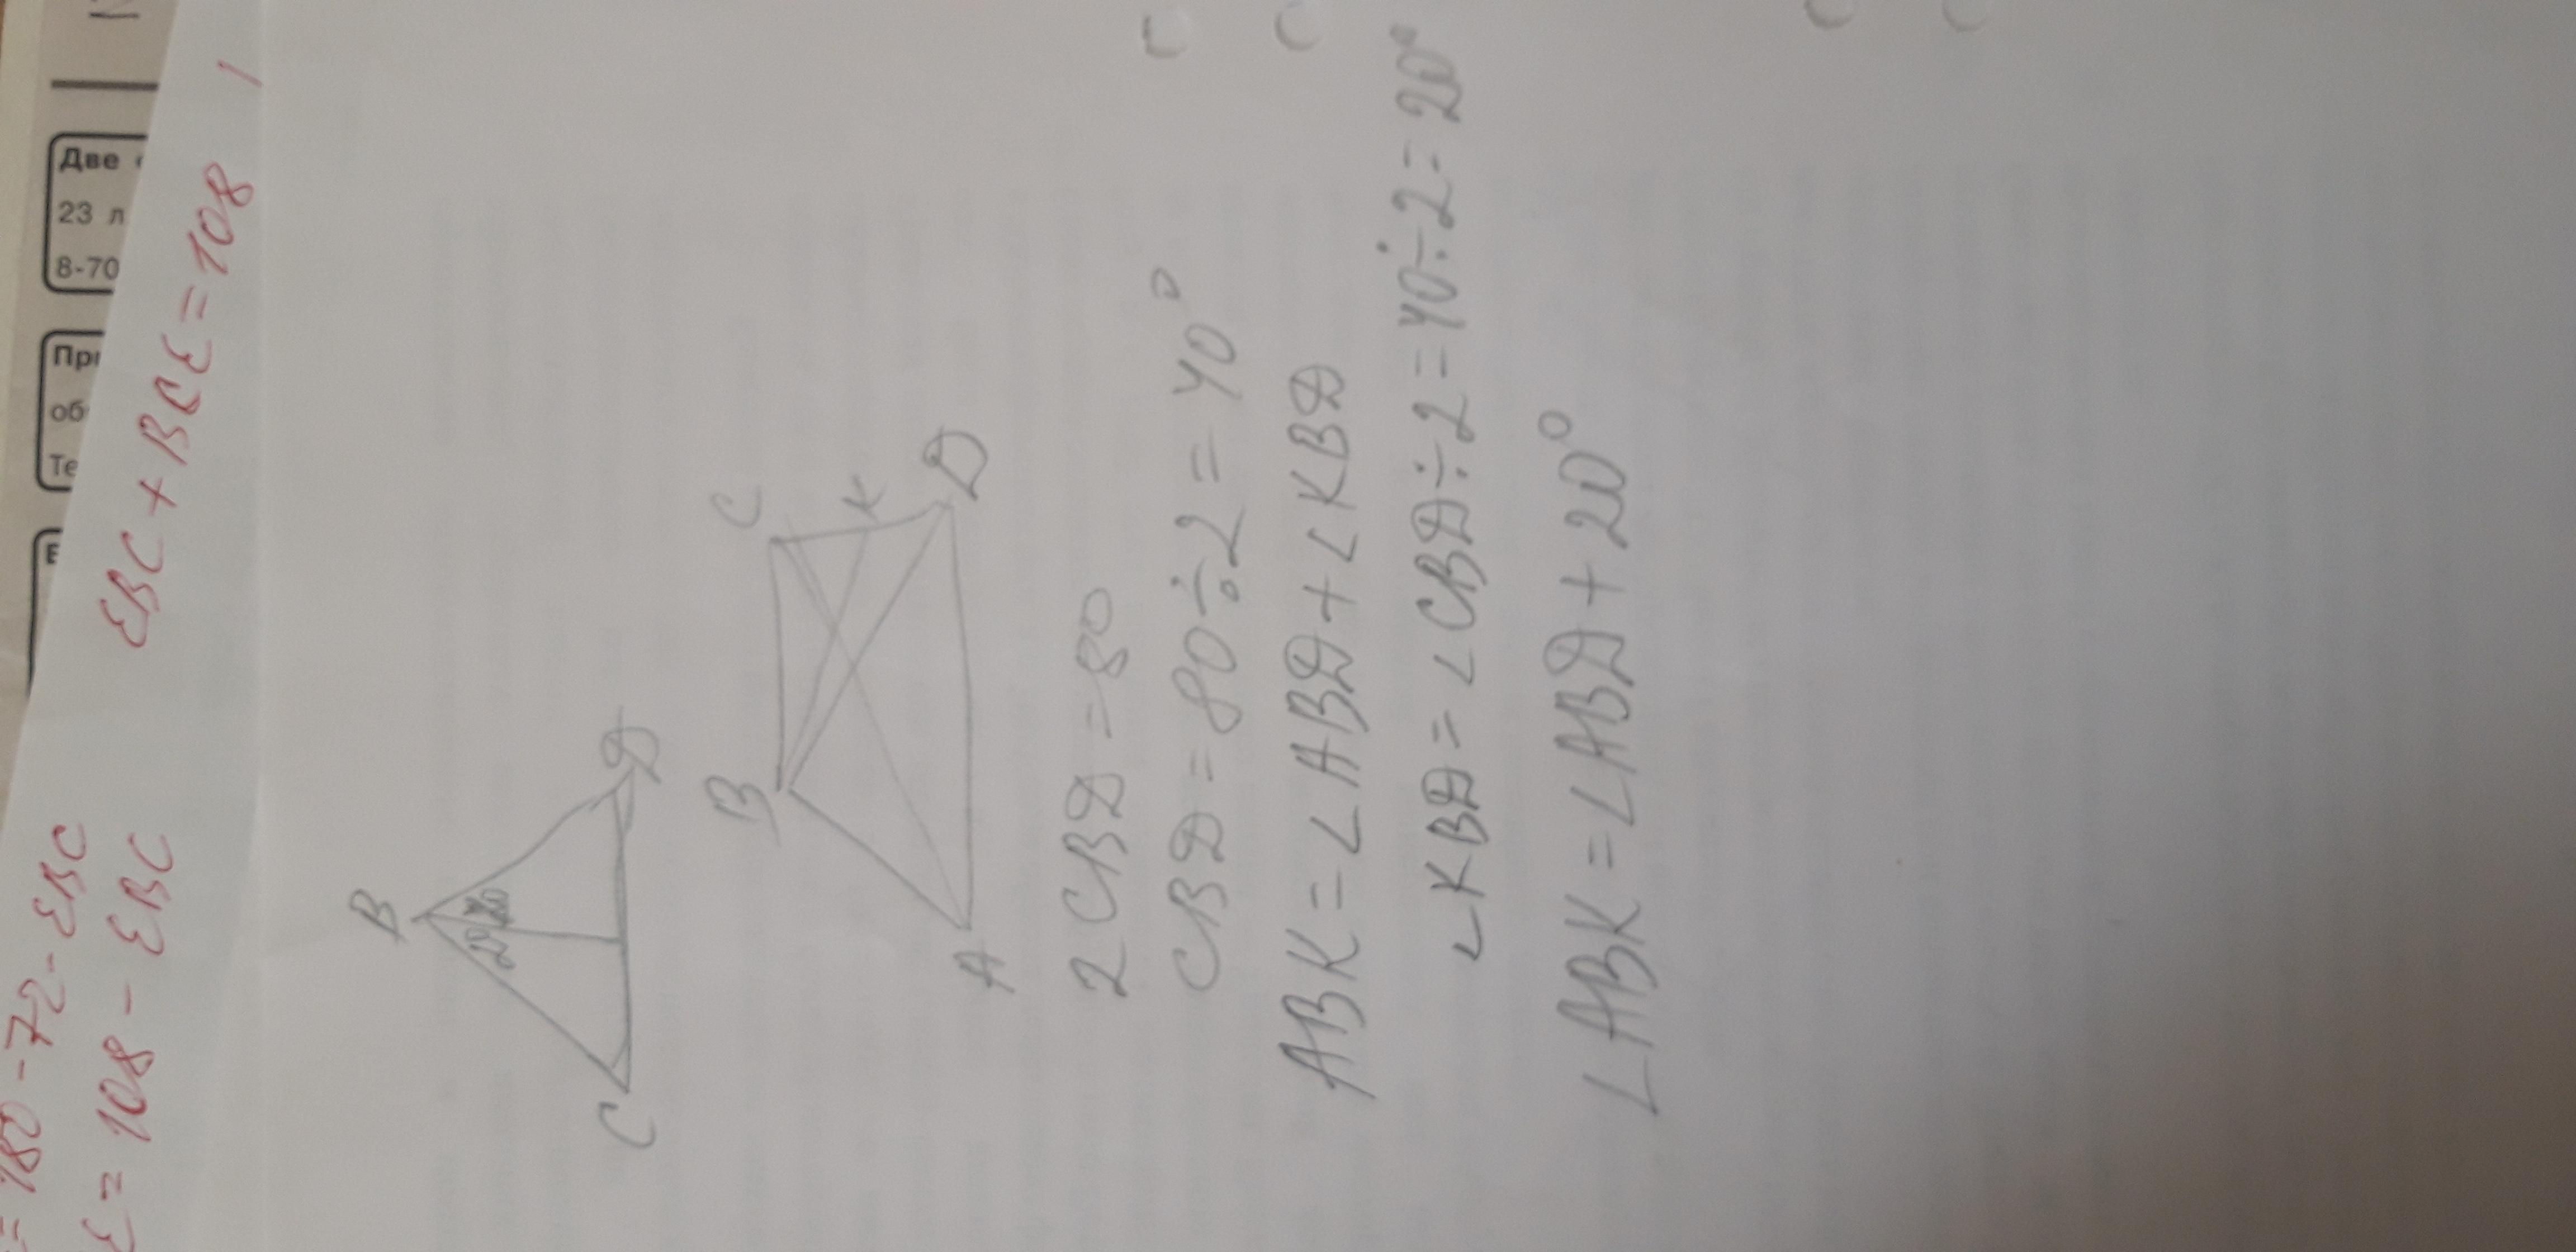 Две
23 л
8-70
При
об
Те
= 180 - 72 - EBC
E = 108 - EBC
EBC + BCE = 108
B
20
C
D
B
C
K
A
D
2 CBD = 80
CBD = 80 ÷ 2 = 40°
ABK = ∠ABD + ∠KBD
∠KBD = ∠CBD ÷ 2 = 40 ÷ 2 = 20°
∠ABK = ∠ABD + 20°